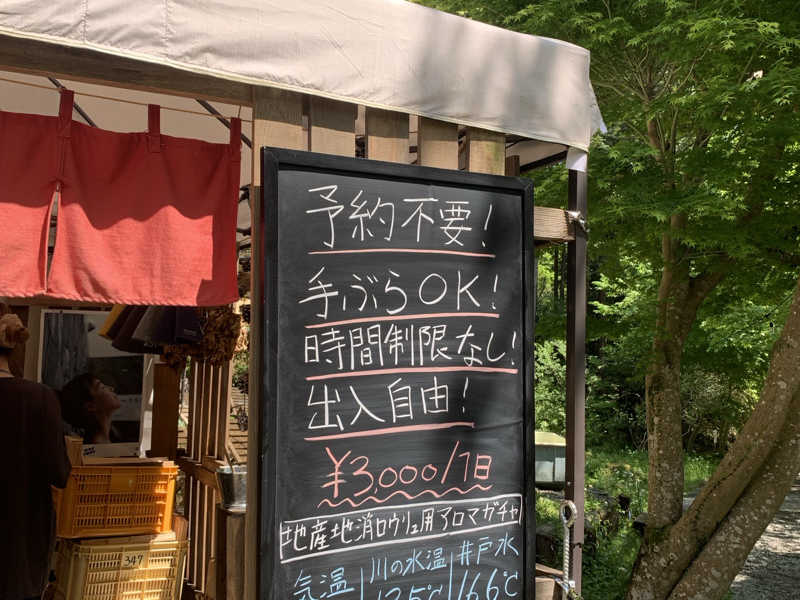 予約不要!
手ぶらOK!
時間制限なし!
出入自由!
¥3,000/1日
地産地消ロウリュ用アロマガチャ
気温 川の水温 井戸水
16.6℃
347